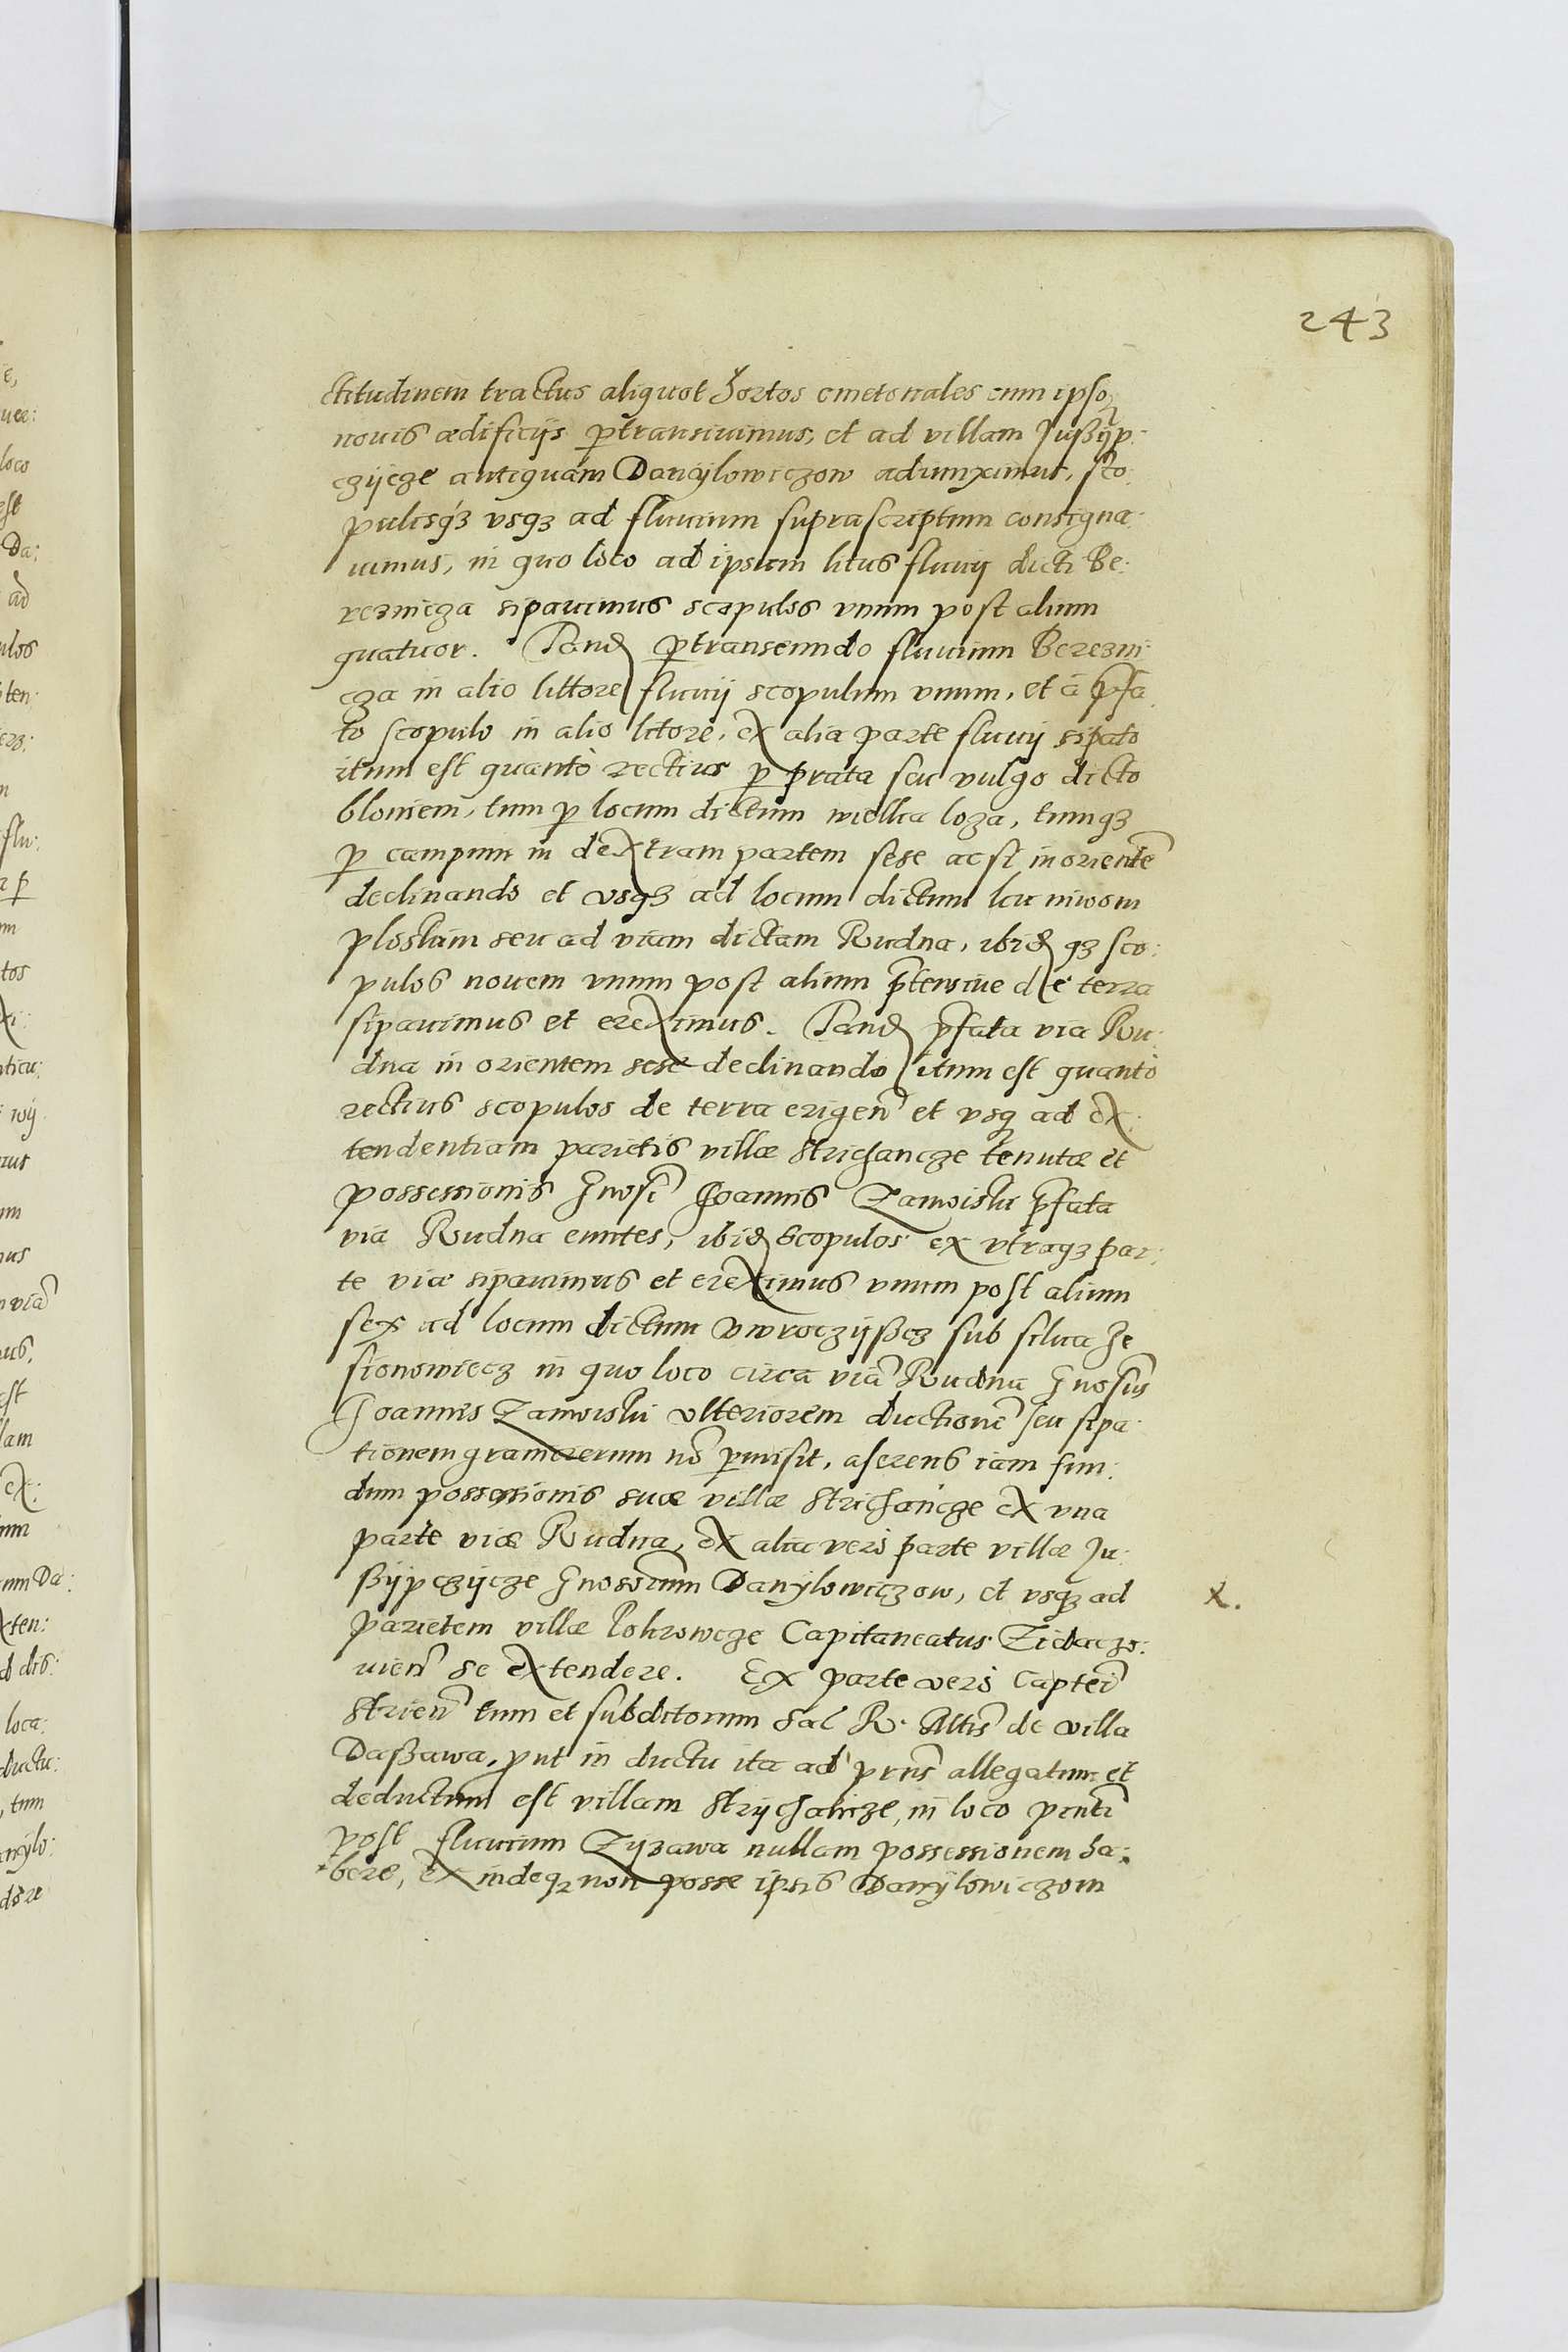 243
ctitudinem tractus aliquot hortos cmetonales cum ipsoꝝ
nouis ædificijs ꝑtransiuimus, et ad villam Jußÿp:
czÿcze antiquam Danÿlowiczow adiunximus, sco:
pulisqꝫ vsqꝫ ad fluuium suprascriptum consigna:
uimus, in quo loco ad ipsum litus fluuij dicti Be:
reznicza sipauimus scopulos vnum post alium
quatuor. Tandē ꝑtranseundo fluuium Berezni:
cza in alio littore fluuij scopulum vnum, et à p̄fa:
to scopulo in alio litore, ex alia parte fluuij sipato
itum est quantò rectius ꝑ prata seu vulgo dicto
bloniem, tum ꝑ locum dictum wielka loza, tumqꝫ
ꝑ campum in dextram partem sese acsi in orientē
declinando et vsqꝫ ad locum dictum ku niwom
ploskim seu ad viam dictam Rudna, ibidē qꝫ sco:
pulos nouem vnum post alium p̄tensiue de terra
sipauimus et ereximus. Tandē p̄fata via Ru:
dna in orientem sese declinando itum est quantò
rectius scopulos de terra erigen̄ et vsqꝫ ad ex:
tendentiam parietis villæ Strichancze tenutæ et
possessionis Gnosi Joannis Zamoiski p̄fata
via Rudna euntes, ibidē scopulos ex vtraqꝫ par:
te viæ sipauimus et ereximus vnum post alium
sex ad locum dictum vwroczÿßcz sub silua Je
sionowiecz in quo loco circa viā Rudna Gnosus
Joannis Zamoiski vlteriorem ductionē seu sipa:
tionem granicierum nō ꝑmisit, aserens iam fun:
dum possessionis suæ villæ Strichancze ex vna
parte viæ Rudna, ex alia verò parte villæ Ju:
ßÿpczÿcze Gnosorum Danÿlowiczow, et vsqꝫ ad
parietem villæ Pokrowcze Capitaneatus Zidaczo:
uien̄ se extendere. Ex parte verò Captei
Strien̄ tum et subditorum Sac R. Mtis de villa
Daßawa, prut in ductu ita ad p̄ns allegatum et
deductum est villam Strÿchancze, in loco p̄nti
post fluuium Zÿzawa nullam possessionem ha:
bere, ex indeqꝫ non posse ipsis Danÿlowiczom
X.